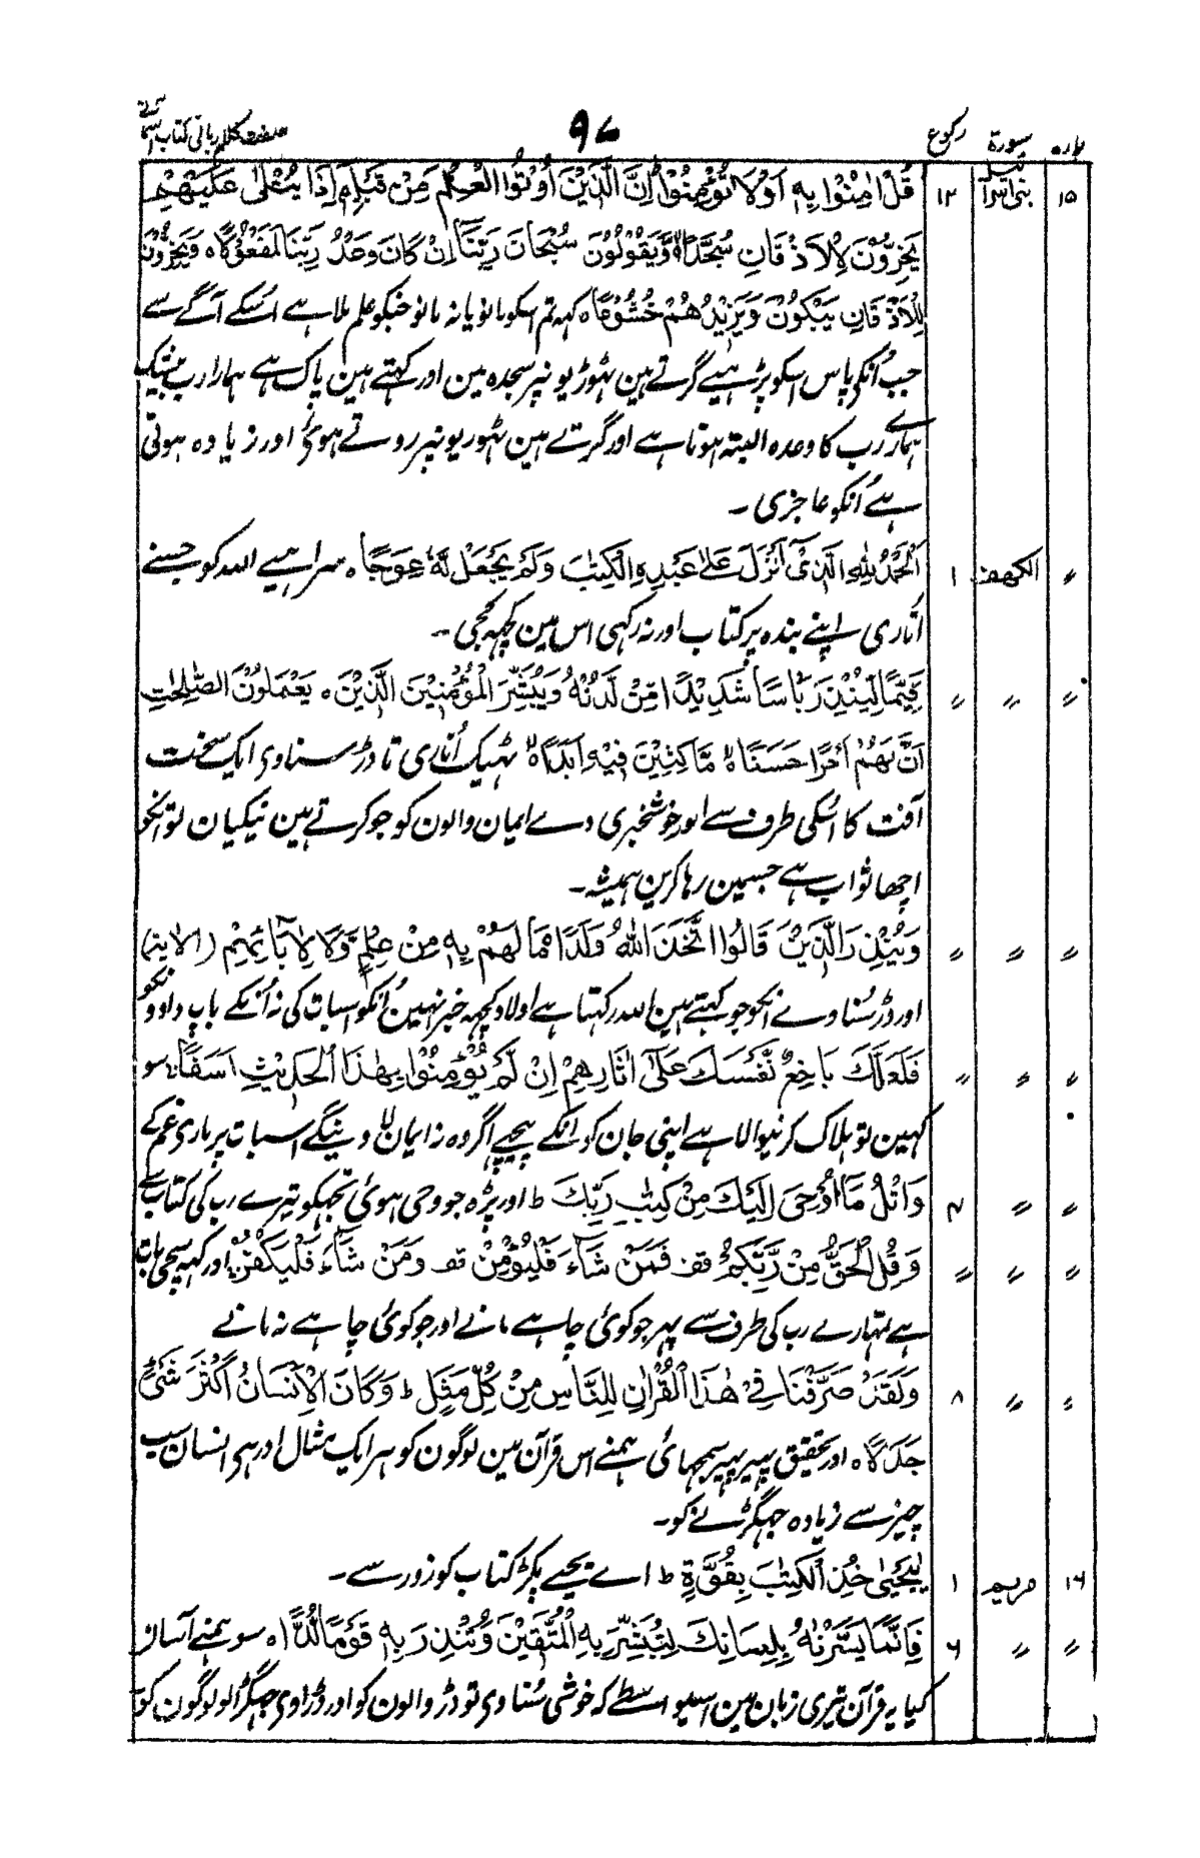 پارہ سورۃ رکوع ۹۷ صفت کلام ربانی کتاب آسمانی
۱۵ بنی اسرائیل ۱۲ قُلْ اٰمِنُوْا بِهٖ اَوْ لَا تُؤْمِنُوْا اِنَّ الَّذِيْنَ اُوْتُوا الْعِلْمَ مِنْ قَبْلِهٖ اِذَا يُتْلٰى عَلَيْهِمْ
يَخِرُّوْنَ لِلْاَذْقَانِ سُجَّدًا ۙ وَّيَقُوْلُوْنَ سُبْحَانَ رَبِّنَا اِنْ كَانَ وَعْدُ رَبِّنَا لَمَفْعُوْلًا ہ وَيَخِرُّوْنَ
لِلْاَذْقَانِ يَبْكُوْنَ وَيَزِيْدُهُمْ خُشُوْعًا ہ کہہ تم اسکو مانو یا نہ مانو جنکو علم ملا ہے اُسکے آگے سے
جب اُنکے پاس اسکو پڑہیے گرتے ہین ٹہوڑیونپر سجدہ مین اور کہتے ہین پاک ہے ہمارا رب بیشک
ہمارے رب کا وعدہ البتہ ہوتا ہے اور گرتے ہین ٹہوریونپر روتے ہوئ اور زیادہ ہوتی
ہے اُنکو عاجزی ۔
〃 الکہف ۱ اَلْحَمْدُ لِلّٰهِ الَّذِيْٓ اَنْزَلَ عَلٰى عَبْدِهِ الْكِتٰبَ وَلَمْ يَجْعَلْ لَّهٗ عِوَجًا ہ سراہیے اللہ کو جسنے
اُتاری اپنے بندہ پر کتاب اور نہ رکہی اس مین کچہہ کجی ۔
〃 〃 〃 قَيِّمًا لِّيُنْذِرَ بَاْسًا شَدِيْدًا مِّنْ لَّدُنْهُ وَيُبَشِّرَ الْمُؤْمِنِيْنَ الَّذِيْنَ ہ يَعْمَلُوْنَ الصّٰلِحٰتِ
اَنَّ لَهُمْ اَجْرًا حَسَنًا ہ ۙ مَّاكِثِيْنَ فِيْهِ اَبَدًا ہ ۙ ٹہیک اُتاری تا ڈر سناوی ایک سخت
آفت کا اُسکی طرف سے اور خوشخبری دے ایمان والون کو جو کرتے ہین نیکیان تو انکو
اچھا ثواب ہے جسمین رہا کرین ہمیشہ ۔
〃 〃 〃 وَيُنْذِرَ الَّذِيْنَ قَالُوا اتَّخَذَ اللّٰهُ وَلَدًا مَّا لَهُمْ بِهٖ مِنْ عِلْمٍ وَّلَا لِاٰبَآئِهِمْ (الاٰیۃ)
اور ڈر سُناوے انکو جو کہتے ہین اللہ رکہتا ہے اولاد کچہہ خبر نہین اُنکو اسبات کی نہ اُنکے باپ دادونکو
〃 〃 〃 فَلَعَلَّكَ بَاخِعٌ نَّفْسَكَ عَلٰٓى اٰثَارِهِمْ اِنْ لَّمْ يُؤْمِنُوْا بِهٰذَا الْحَدِيْثِ اَسَفًا ہ سو
کہین تو ہلاک کرنیوالا ہے اپنی جان کو اُنکے پیچہے اگر وہ نہ ایمان لاوینگے اسبات پر ماری غم کے
〃 〃 ۴ وَاتْلُ مَآ اُوْحِيَ اِلَيْكَ مِنْ كِتٰبِ رَبِّكَ ط اور پڑہ جو وحی ہوئی تجہکو تیرے رب کی کتاب سے
〃 〃 〃 وَقُلِ الْحَقُّ مِنْ رَّبِّكُمْ قف فَمَنْ شَآءَ فَلْيُؤْمِنْ قف وَمَنْ شَآءَ فَلْيَكْفُرْ اور کہہ سچی بات
ہے تمہارے رب کی طرف سے پہر جو کوئ چاہے مانے اور جو کوئ چاہے نہ مانے
〃 〃 ۸ وَلَقَدْ صَرَّفْنَا فِيْ هٰذَا الْقُرْاٰنِ لِلنَّاسِ مِنْ كُلِّ مَثَلٍ ط وَكَانَ الْاِنْسَانُ اَكْثَرَ شَيْءٍ
جَدَلًا ہ اور تحقیق پہیر پہیر سمجہائ ہمنے اس قرآن مین لوگون کو ہر ایک مثال اور ہی انسان سب
چیز سے زیادہ جہگڑنے کو ۔
۱۶ مریم ۱ يٰيَحْيٰى خُذِ الْكِتٰبَ بِقُوَّةٍ ط اے یحیے پکڑ کتاب کو زور سے ۔
〃 〃 ۶ فَاِنَّمَا يَسَّرْنٰهُ بِلِسَانِكَ لِتُبَشِّرَ بِهِ الْمُتَّقِيْنَ وَتُنْذِرَ بِهٖ قَوْمًا لُّدًّا ہ سو ہمنے آسان
کیا یہ قرآن تیری زبان مین اسیواسطے کہ خوشی سُناوی تو ڈر والون کو اور ڈراوی جہگڑالو لوگون کو